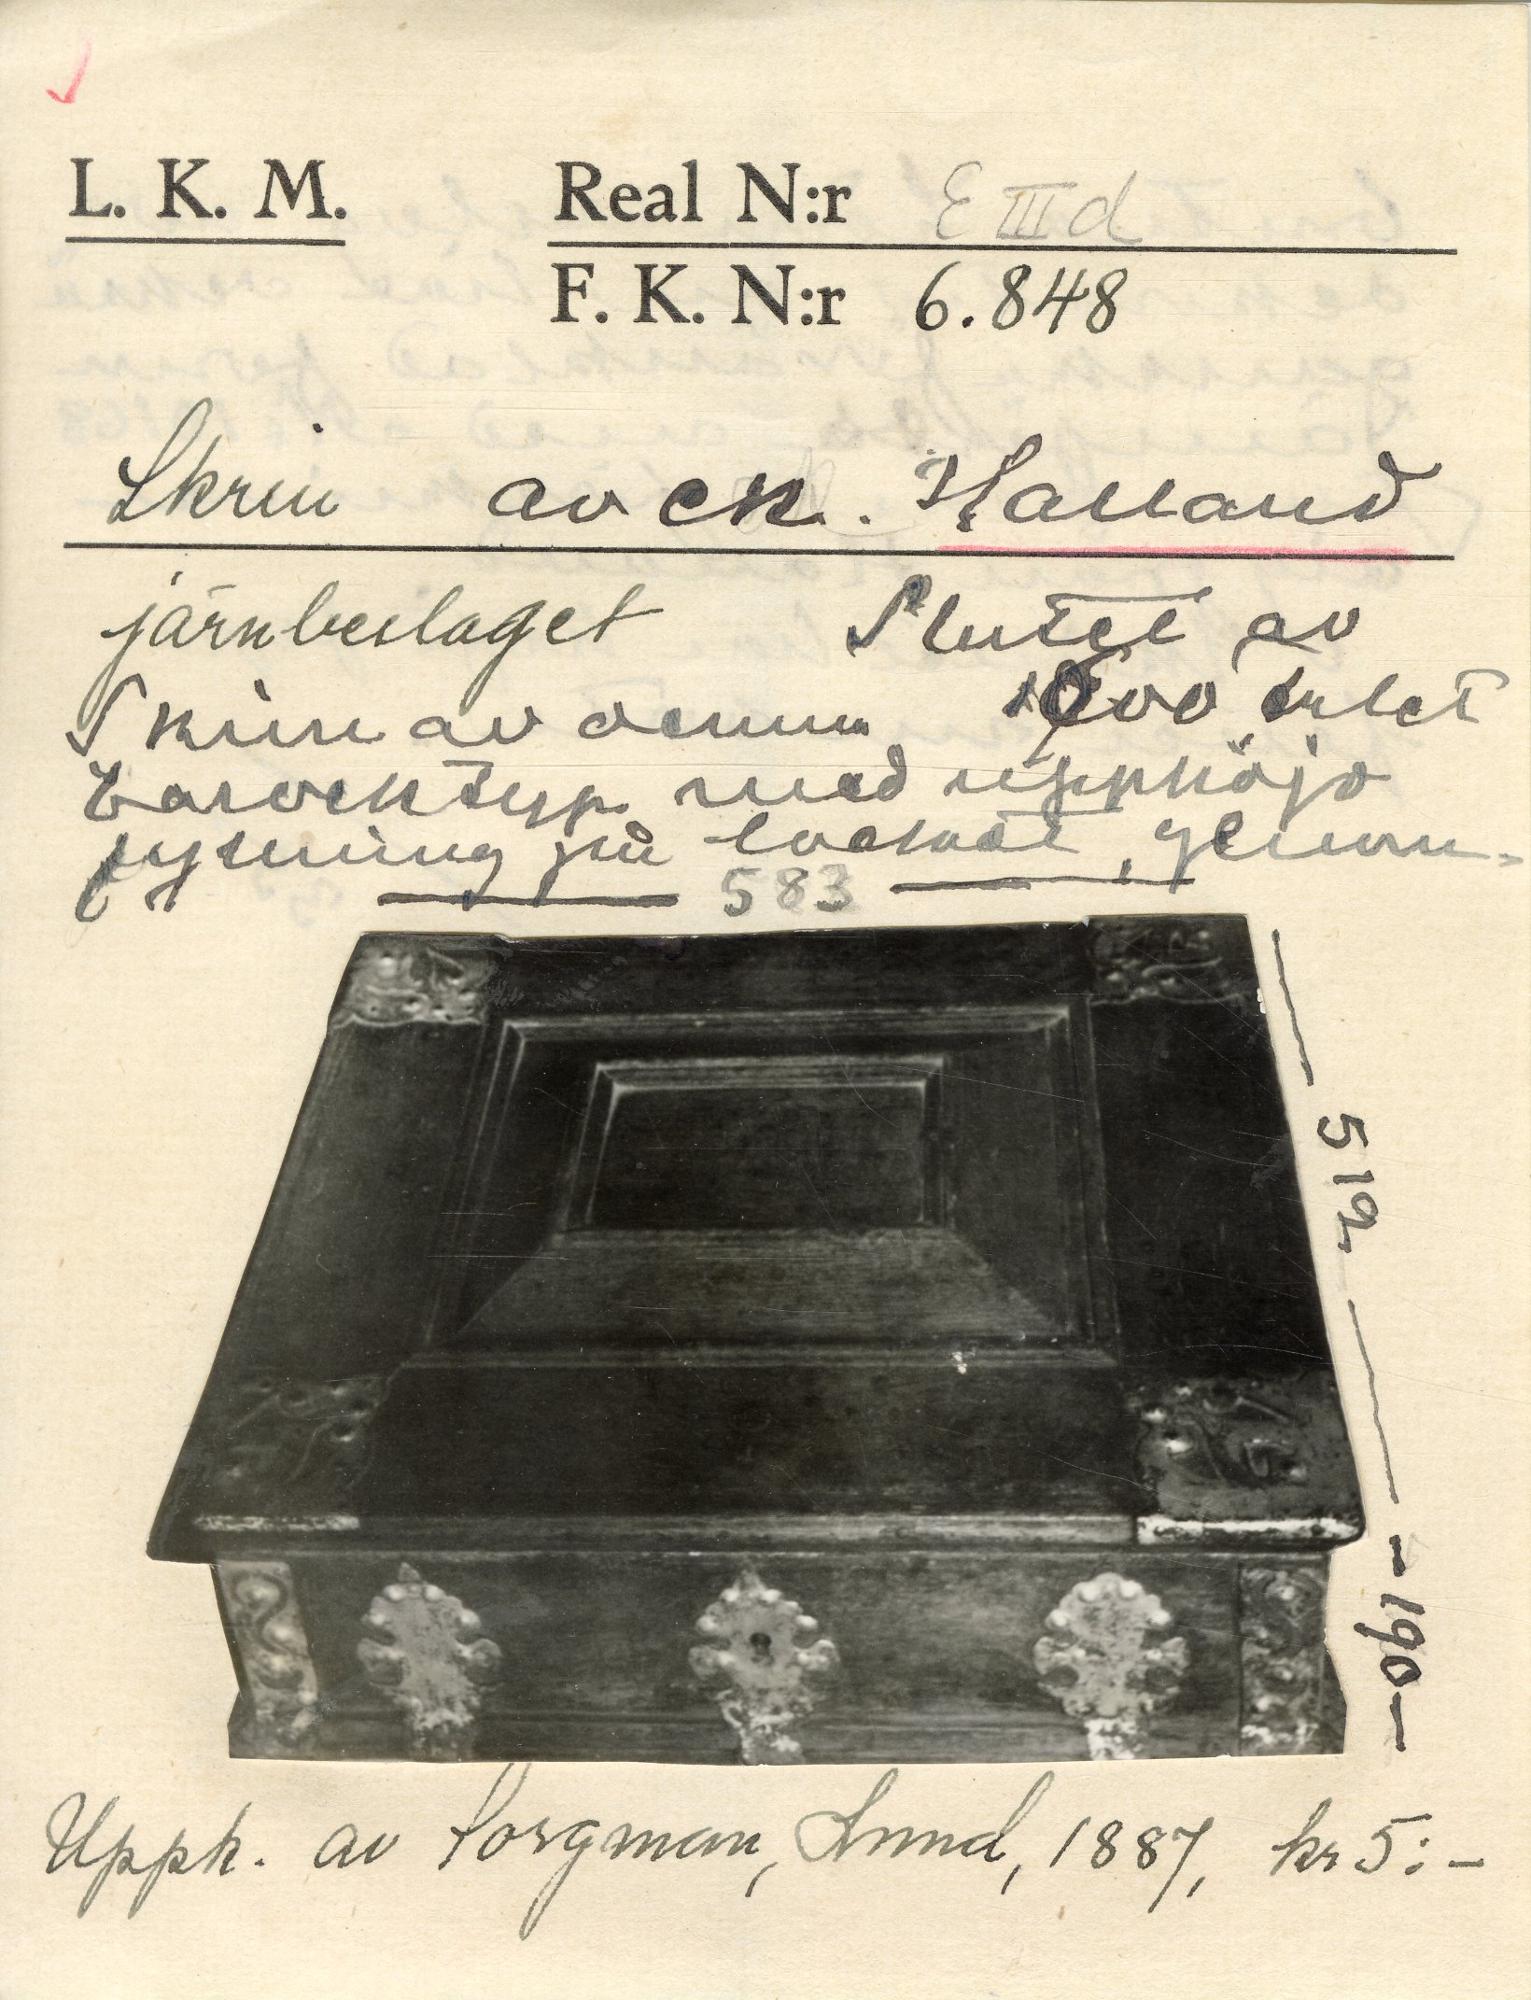 L. K. M. Real N:r E III d
F. K. N:r 6.848
Skrin av ek. Halland
järnbeslaget Slutet av
Skrin av denna 1600 talet
barocktyp med upphöjd
fyllning på locket, genom-
583
512
190
Uppk. av Borgman, Lund, 1887, kr 5:-